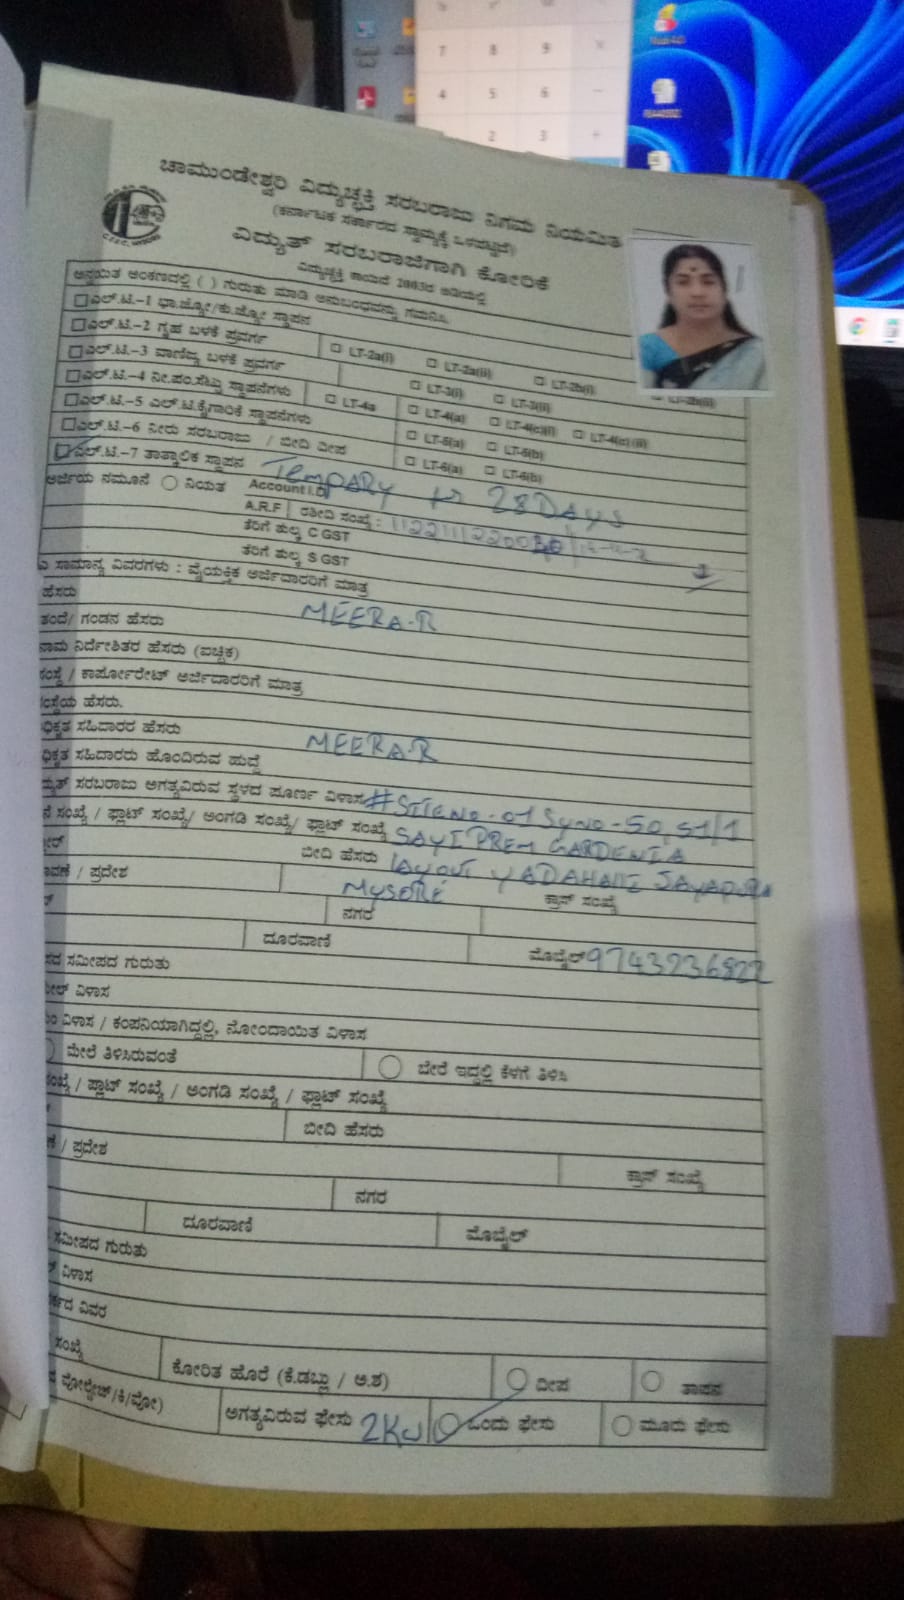 7 8 9
4 5 6
2 3
ಚಾಮುಂಡೇಶ್ವರಿ ವಿದ್ಯುಚ್ಛಕ್ತಿ ಸರಬರಾಜು ನಿಗಮ ನಿಯಮಿತ
(ಕರ್ನಾಟಕ ಸರ್ಕಾರದ ಸ್ವಾಮ್ಯಕ್ಕೆ ಒಳಪಟ್ಟಿದೆ)
ವಿದ್ಯುತ್ ಸರಬರಾಜಿಗಾಗಿ ಕೋರಿಕೆ
ವಿದ್ಯುಚ್ಛಕ್ತಿ ಕಾಯಿದೆ 2003ರ ಅಡಿಯಲ್ಲಿ
ಅನ್ವಯಿತ ಅಂಕಣದಲ್ಲಿ ( ) ಗುರುತು ಮಾಡಿ ಅನುಬಂಧವನ್ನು ಗಮನಿಸಿ.
ಎಲ್.ಟಿ.-1 ಭಾ.ಜ್ಯೋ/ಕು.ಜ್ಯೋ ಸ್ಥಾಪನ
ಎಲ್.ಟಿ.-2 ಗೃಹ ಬಳಕೆ ಪ್ರವರ್ಗ LT-2a(i) LT-2a(ii) LT-2b(i) LT-2b(ii)
ಎಲ್.ಟಿ.-3 ವಾಣಿಜ್ಯ ಬಳಕೆ ಪ್ರವರ್ಗ LT-3(i) LT-3(ii)
ಎಲ್.ಟಿ.-4 ನೀ.ಪಂ.ಸೆಟ್ಟು ಸ್ಥಾಪನೆಗಳು LT-4a LT-4(a) LT-4(c)(i) LT-4(c)(ii)
ಎಲ್.ಟಿ.-5 ಎಲ್.ಟಿ.ಕೈಗಾರಿಕೆ ಸ್ಥಾಪನೆಗಳು LT-5(a) LT-5(b)
ಎಲ್.ಟಿ.-6 ನೀರು ಸರಬರಾಜು / ಬೀದಿ ದೀಪ LT-6(a) LT-6(b)
ಎಲ್.ಟಿ.-7 ತಾತ್ಕಾಲಿಕ ಸ್ಥಾಪನ TempARY for 28 DAYS
ಅರ್ಜಿಯ ನಮೂನೆ ನಿಯತ Account I.D
A.R.F ರಶೀದಿ ಸಂಖ್ಯೆ :
ತೆರಿಗೆ ಶುಲ್ಕ C GST
ತೆರಿಗೆ ಶುಲ್ಕ S GST
ಎ ಸಾಮಾನ್ಯ ವಿವರಗಳು : ವೈಯಕ್ತಿಕ ಅರ್ಜಿದಾರರಿಗೆ ಮಾತ್ರ
ಹೆಸರು MEERA.R
ತಂದೆ/ ಗಂಡನ ಹೆಸರು
ನಾಮ ನಿರ್ದೇಶಿತರ ಹೆಸರು (ಐಚ್ಛಿಕ)
ಸಂಸ್ಥೆ / ಕಾರ್ಪೋರೇಟ್ ಅರ್ಜಿದಾರರಿಗೆ ಮಾತ್ರ
ಸಂಸ್ಥೆಯ ಹೆಸರು.
ಧಿಕೃತ ಸಹಿದಾರರ ಹೆಸರು MEERA.R
ಧಿಕೃತ ಸಹಿದಾರರು ಹೊಂದಿರುವ ಹುದ್ದೆ
ದ್ಯುತ್ ಸರಬರಾಜು ಅಗತ್ಯವಿರುವ ಸ್ಥಳದ ಪೂರ್ಣ ವಿಳಾಸ # SITENO-01 SyNO-50,51/1
ನೆ ಸಂಖ್ಯೆ / ಫ್ಲಾಟ್ ಸಂಖ್ಯೆ/ ಅಂಗಡಿ ಸಂಖ್ಯೆ/ ಫ್ಲಾಟ್ ಸಂಖ್ಯೆ SAYI PREM GARDENIA
ಬೀದಿ ಹೆಸರು LAYOUT YADAHALLI JAYAPURA
ಾವಣೆ / ಪ್ರದೇಶ MYSORE ಕ್ರಾಸ್ ಸಂಖ್ಯೆ
ನಗರ
ದೂರವಾಣಿ ಮೊಬೈಲ್ 9743236822
ಸದ ಸಮೀಪದ ಗುರುತು
ಮೇಲ್ ವಿಳಾಸ
ವಿಳಾಸ / ಕಂಪನಿಯಾಗಿದ್ದಲ್ಲಿ, ನೋಂದಾಯಿತ ವಿಳಾಸ
ಮೇಲೆ ತಿಳಿಸಿರುವಂತೆ ಬೇರೆ ಇದ್ದಲ್ಲಿ ಕೆಳಗೆ ತಿಳಿಸಿ
ಸಂಖ್ಯೆ / ಫ್ಲಾಟ್ ಸಂಖ್ಯೆ / ಅಂಗಡಿ ಸಂಖ್ಯೆ / ಫ್ಲಾಟ್ ಸಂಖ್ಯೆ
ಬೀದಿ ಹೆಸರು
ಣೆ / ಪ್ರದೇಶ ಕ್ರಾಸ್ ಸಂಖ್ಯೆ
ನಗರ
ದೂರವಾಣಿ ಮೊಬೈಲ್
ಸಮೀಪದ ಗುರುತು
ಲ್ ವಿಳಾಸ
ರ್ಕದ ವಿವರ
ಸಂಖ್ಯೆ ಕೋರಿತ ಹೊರೆ (ಕೆ.ಡಬ್ಲು / ಅ.ಶ) ದೀಪ ತಾಪನ
ದ ವೋಲ್ಟೇಜ್/ಕಿ/ವೋ) ಅಗತ್ಯವಿರುವ ಫೇಸು 2KW ಒಂದು ಫೇಸು ಮೂರು ಫೇಸು